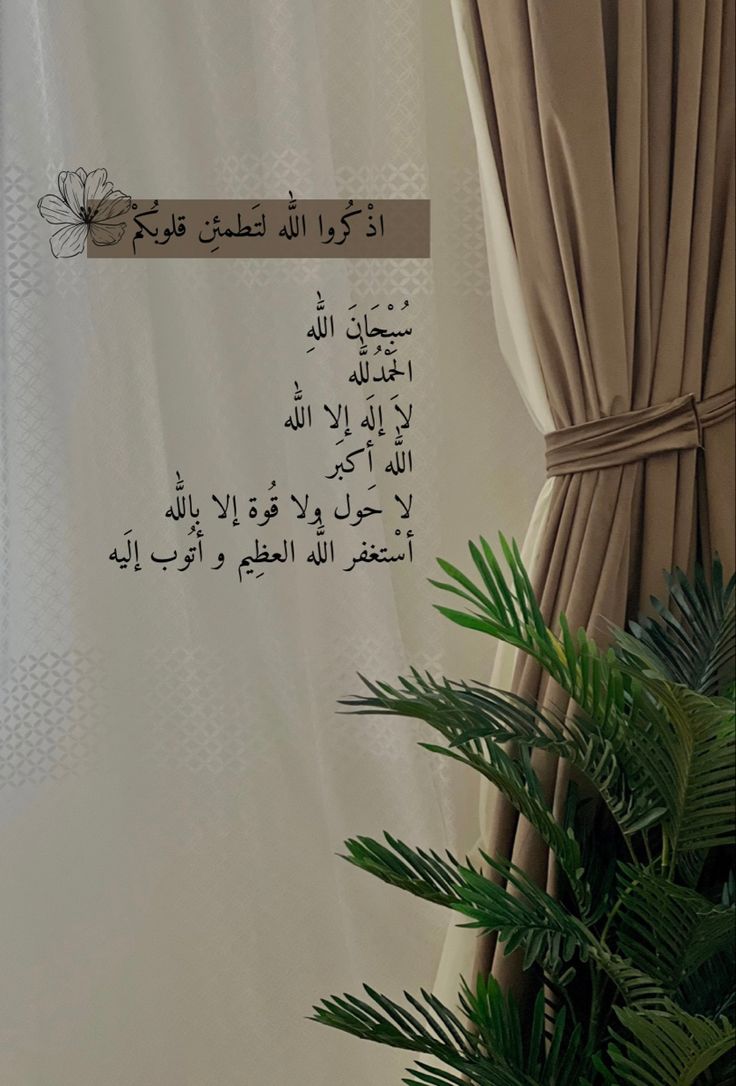 اذْكُروا اللّٰه لتَطمئِن قلوبُكمْ
سُبْحَانَ اللّٰهِ
الحَمْدُللّٰه
لاَ إلَه إلا اللّٰه
اللّٰه أكبَر
لا حَول ولا قُوة إلا باللّٰه
أسْتغفر اللّٰه العظِيم و أتُوب إلَيه